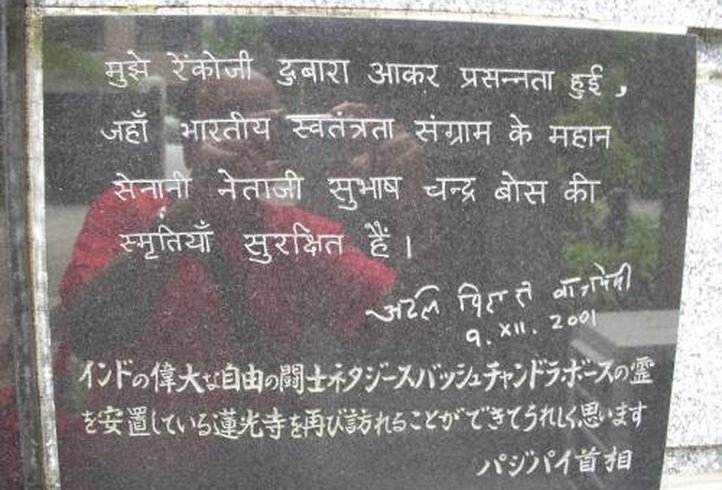 मुझे रेंकोजी दुबारा आकर प्रसन्नता हुई,
जहाँ भारतीय स्वतंत्रता संग्राम के महान
सेनानी नेताजी सुभाष चन्द्र बोस की
स्मृतियाँ सुरक्षित हैं।
अटल बिहारी वाजपेयी
9. XII. 2001
インドの偉大な自由の闘士ネタジースバッシュチャンドラ・ボースの霊
を安置している蓮光寺を再び訪れることができてうれしく思います
バジパイ首相